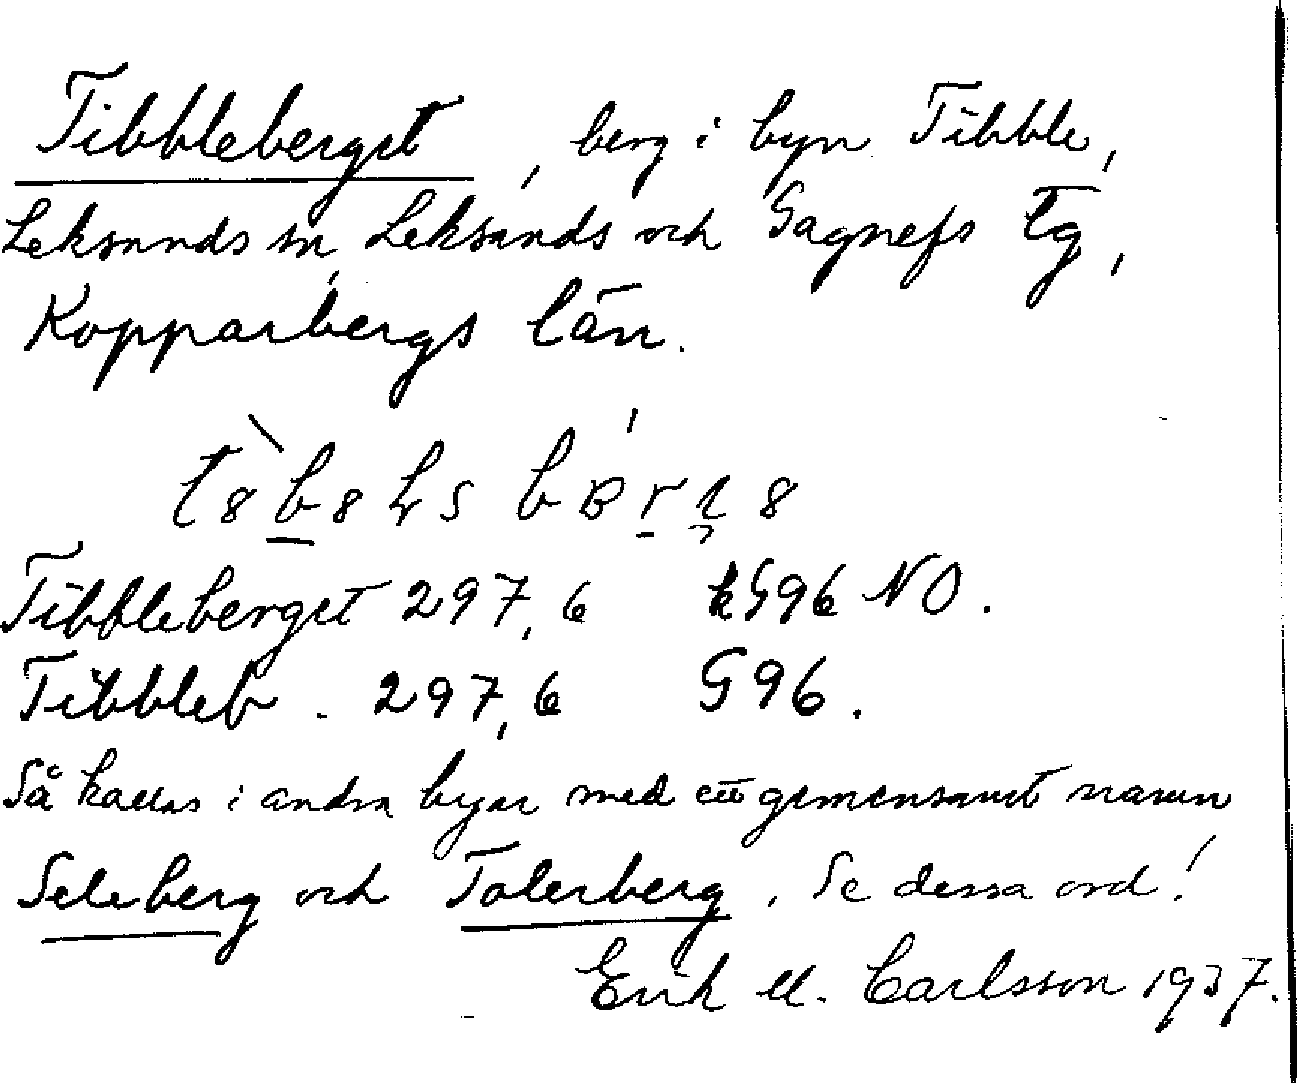 Tibbleberget, berg i byn Tibble,
Leksands sn, Leksands och Gagnefs tg,
Kopparbergs län.
Tibbleberget 297,6 kG96 NO.
Tibbleb. 297,6 G96.
Så kallas i andra byar med ett gemensamt namn
Seleberg och Tolerberg. Se dessa ord!
Erik M. Carlsson 1937.